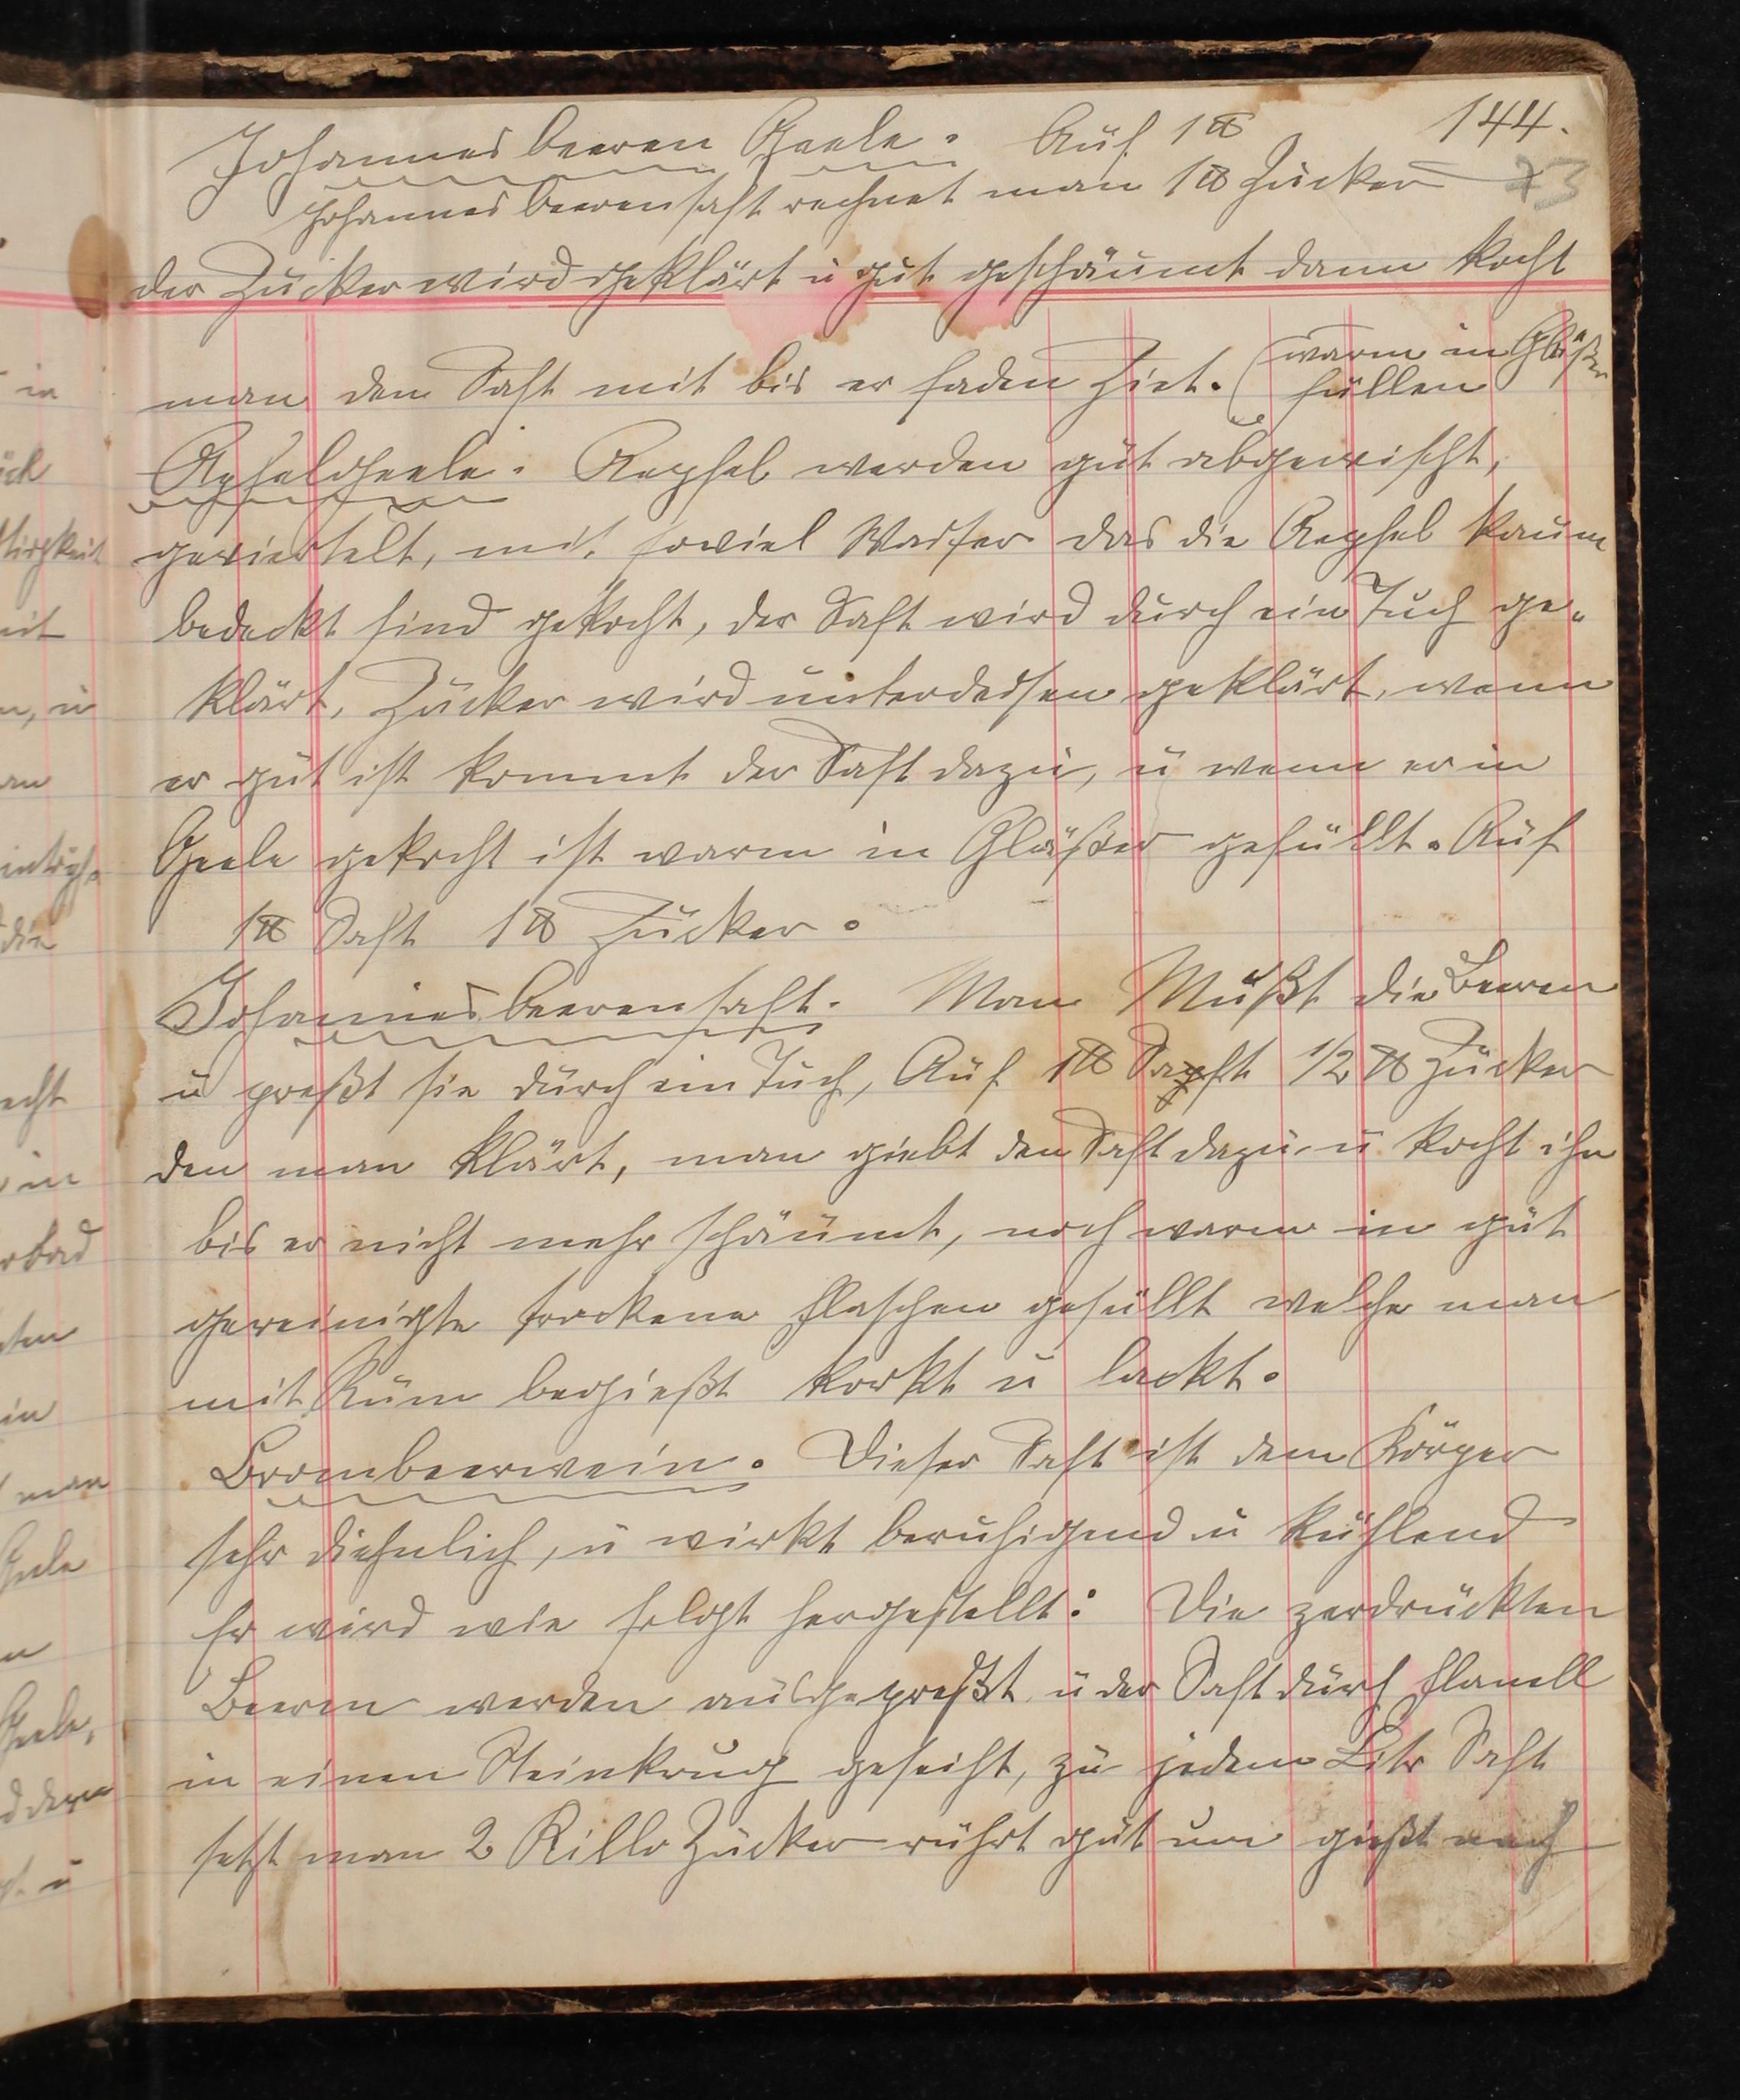 144.
73
Johannesbeeren Geele. Auf 1 ℔
Johannesbeerensaft rechnet man 1 ℔ Zucker
der Zucker wird geklärt u gut geschäumt dann kocht
man den Saft mit bis er faden Ziet. (warm in Gläßer
füllen
Apfelgeele. Aepfel werden gut abgewischt,
geviertelt, mit soviel Wasser das die Aepfel kaum
bedeckt sind gekocht, der Saft wird durch ein Tuch ge-
klärt, Zucker wird unterdessen geklärt, wenn
er gut ist kommt der Saft dazu, u wenn er in
Geele gekocht ist warm in Gläßer gefüllt. Auf
1 ℔ Saft 1 ℔ Zucker.
Johannesbeerensaft. Man Mußt die Beeren
u preßt sie durch ein Tuch, Auf 1 ℔ Saft 1/2 ℔ Zucker
den man klärt, man giebt den Saft dazu u kocht ihn
bis er nicht mehr schäumt, noch warm in gut
gereinigte trockene Flaschen gefüllt welche man
mit Rum begießt korkt u lackt.
Brombeerwein. Dieser Saft ist dem Körper
sehr diehnlich, u wirkt beruhigend u kühlend
Er wird wie folgt hergestellt: Die zerdrückten
Beeren werden ausgepreßt u der Saft durch Flanell
in einen Steinkrug geseiht, zu jedem Litr Saft
setzt man 2 Killo Zucker rührt gut um gießt nach
in
ück
mit
n, u
die
echt
in
erbad
in
man
Geele
Geele,
u